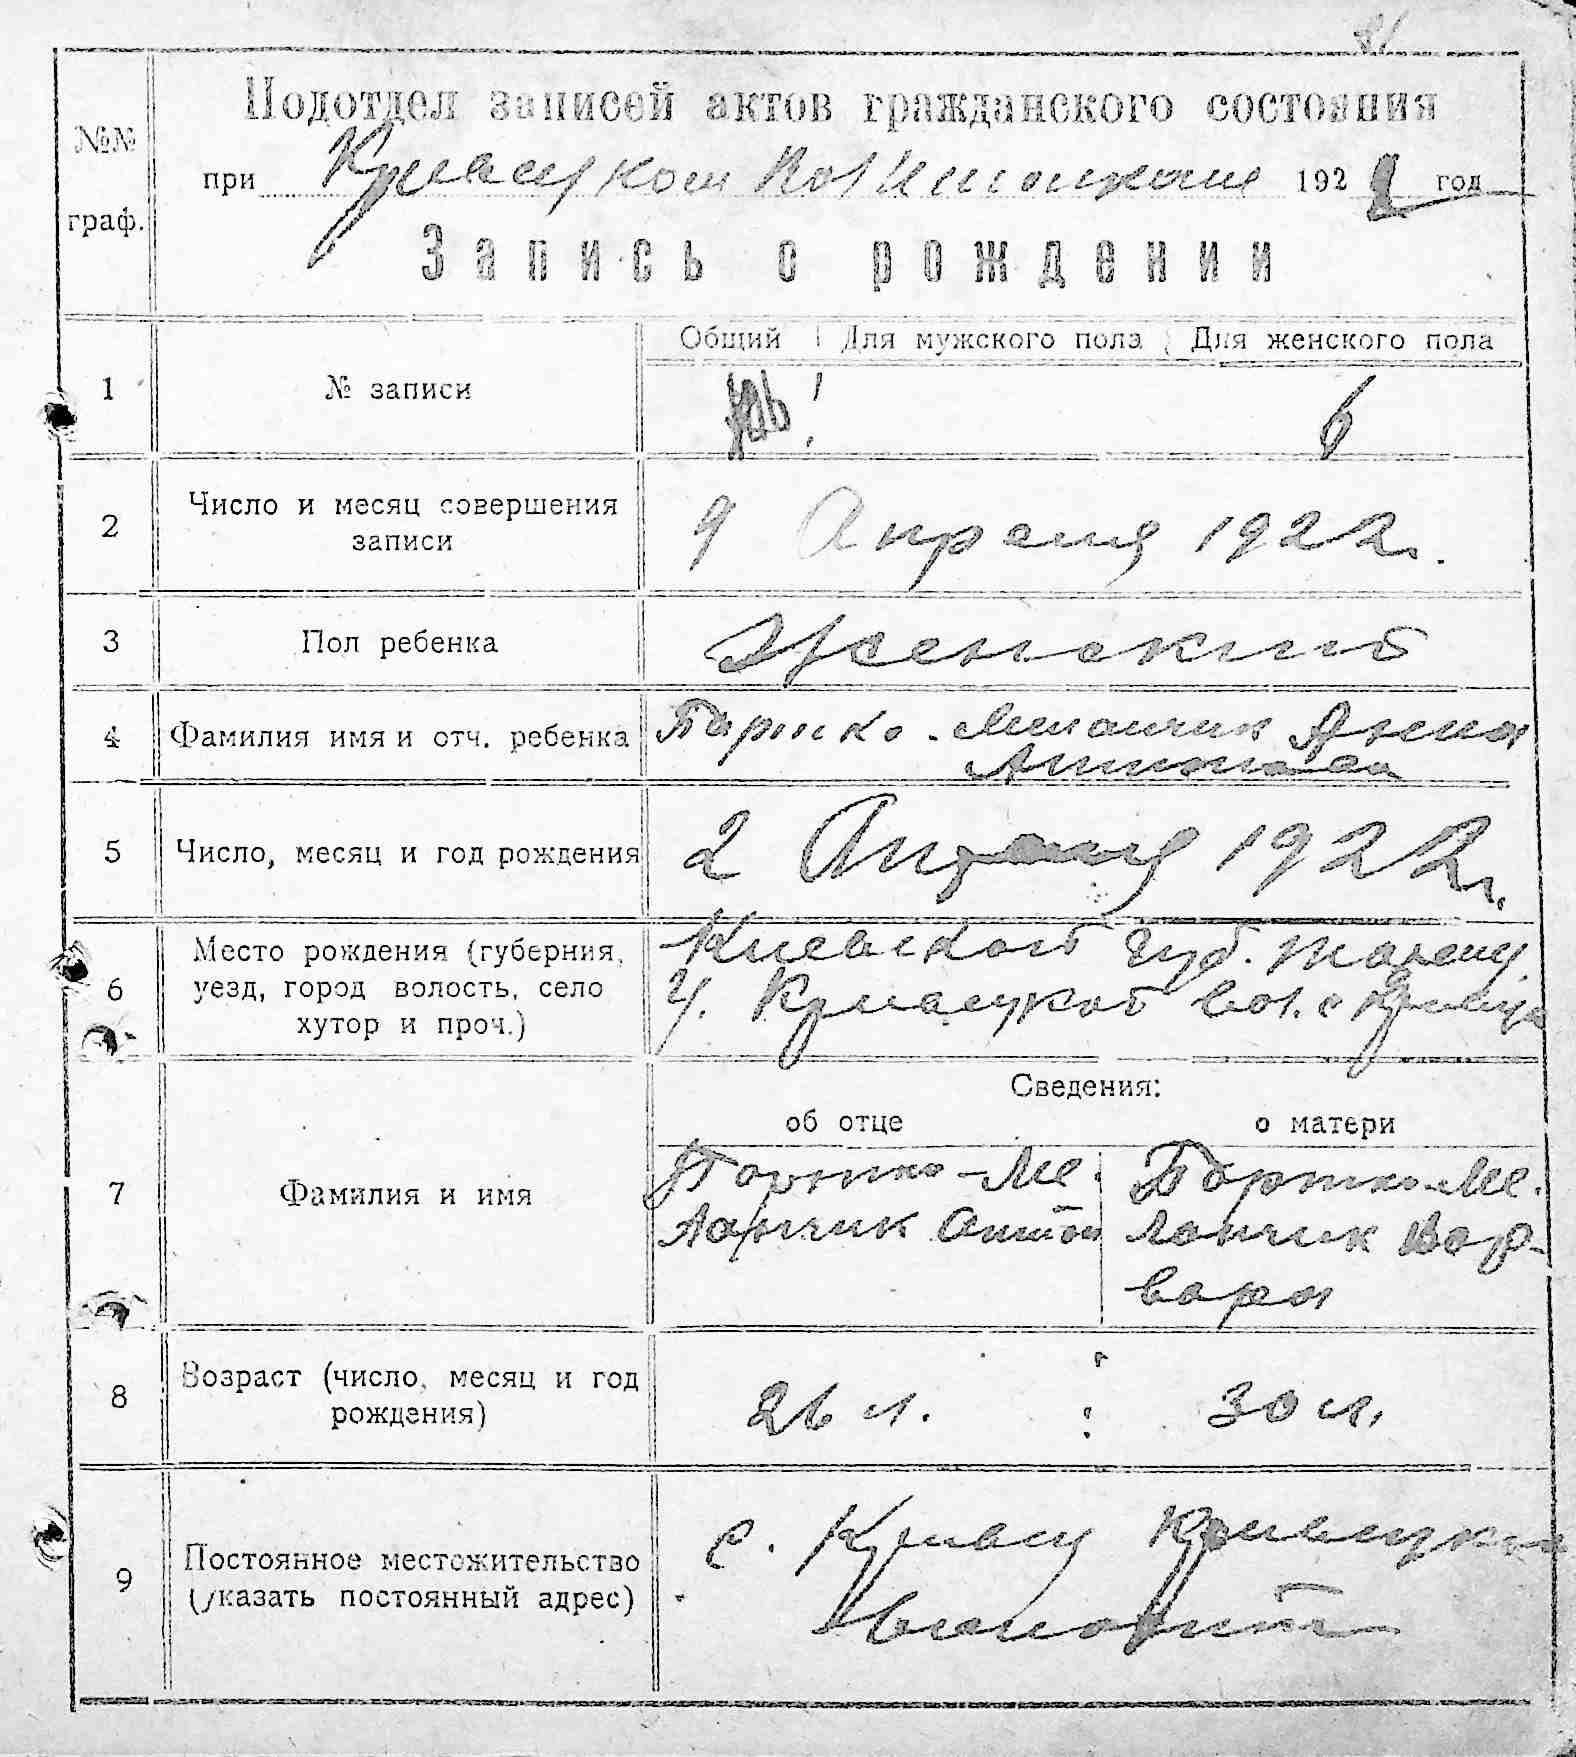 81
№№ граф.
Подотдел записей актов гражданского состояния
при Кривецком Вол Исполкоме 1922 год
Запись о рождении
Общий Для мужского пола Для женского пола
1 № записи 6
2 Число и месяц совершения записи
9 Апреля 1922 г.
3 Пол ребенка Женский
4 Фамилия имя и отч. ребенка
Анна
Антонова
5 Число, месяц и год рождения 2 Апреля 1922 г.
6 Место рождения (губерния, уезд, город волость, село хутор и проч.)
Киевской губ. Таращ.
у. Кривецкой вол. с Кривец
Сведения:
об отце о матери
7 Фамилия и имя
Портко-Ме-
лончик Антон
Портко-Ме-
лончик Вар-
вара
8 Возраст (число, месяц и год рождения)
26 л. 30 л.
9 Постоянное местожительство (указать постоянный адрес)
с. Кривец Кривецкой
волости